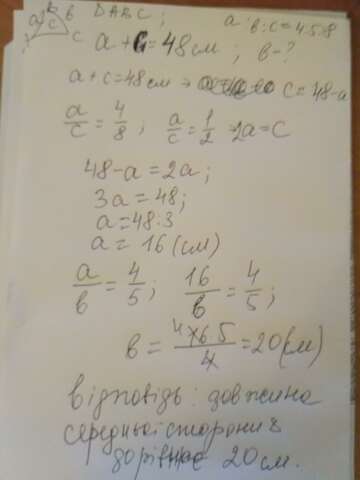 a b c DABC; a:b:c=4:5:8
a+c=48см; b-?
a+c=48см → c=48-a
a/c=4/8; a/c=1/2 2a=c
48-a=2a;
3a=48;
a=48:3
a=16(см)
a/b=4/5; 16/b=4/5;
b=16·5/4=20(см)
відповідь: довжина
середньої сторони
дорівнює 20см.